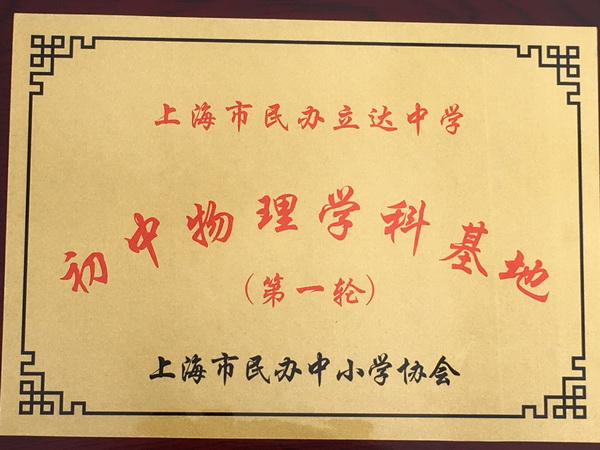 上海市民办立达中学
初中物理学科基地
（第一轮）
上海市民办中小学协会